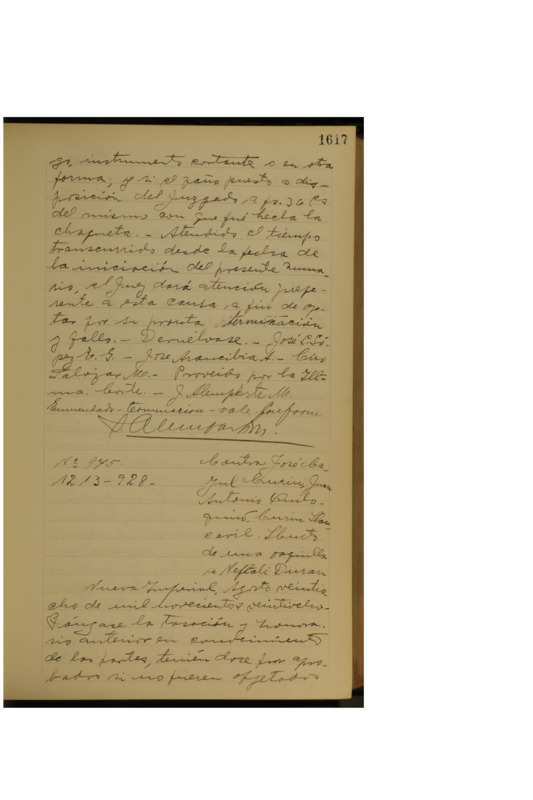 1617
go, instrumento cortante o en otra
forma; y si el paño puesto a dis-
posición del Juzgado a fs. 36 es
del mismo con que fué hecha la
chaqueta. - Atendido el tiempo
transcurrido desde la fecha de
la iniciación del presente suma-
rio, el Juez dará atención prefe-
rente a esta causa a fin de op-
tar por su pronta terminación
y fallo. - Devuélvase. - José C. Ló-
pez E. G. - José Arancibia A. - Ciro
Salazar M. - Proveído por la Iltma.
ma. Corte. - J. Alemparte M.
Enmendado - terminación - vale. Conforme
J. Alemparte M.
No. 945.
1213-928-
Contra José Ca-
yul Curin, Juan
Antonio
Curin
Hurto
de una vaquilla
a Neftalí Duran
Nueva Imperial, Agosto veintio-
cho de mil novecientos veintiocho.
Póngase la tasación y honora-
rio anterior en conocimiento
de las partes, teniéndose por apro-
bados si no fueren objetados